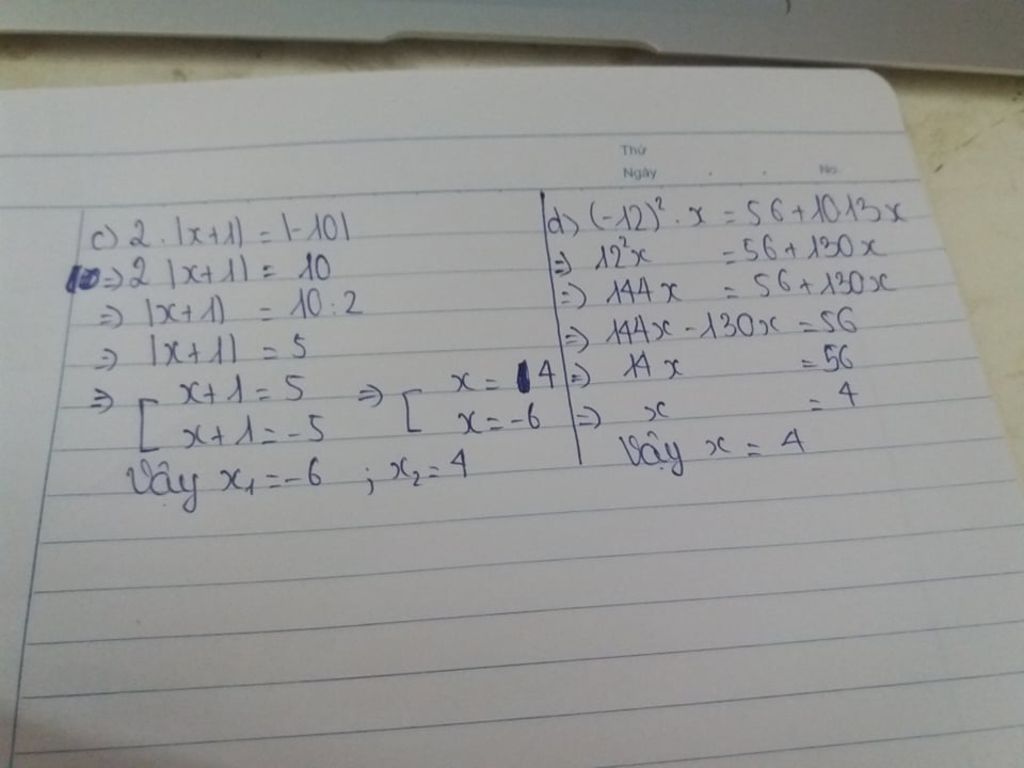 Thứ
Ngày . . No.
c) 2 . |x+1| = |-10|
=> 2 |x+1| = 10
=> |x+1| = 10:2
=> |x+1| = 5
=> [ x+1 = 5 => [ x = 4
x+1 = -5 x = -6
Vây x₁ = -6 ; x₂ = 4
d) (-12)² . x = 56 + 10 13x
=> 12²x = 56 + 130x
=> 144x = 56 + 130x
=> 144x - 130x = 56
=> 14x = 56
=> x = 4
Vậy x = 4